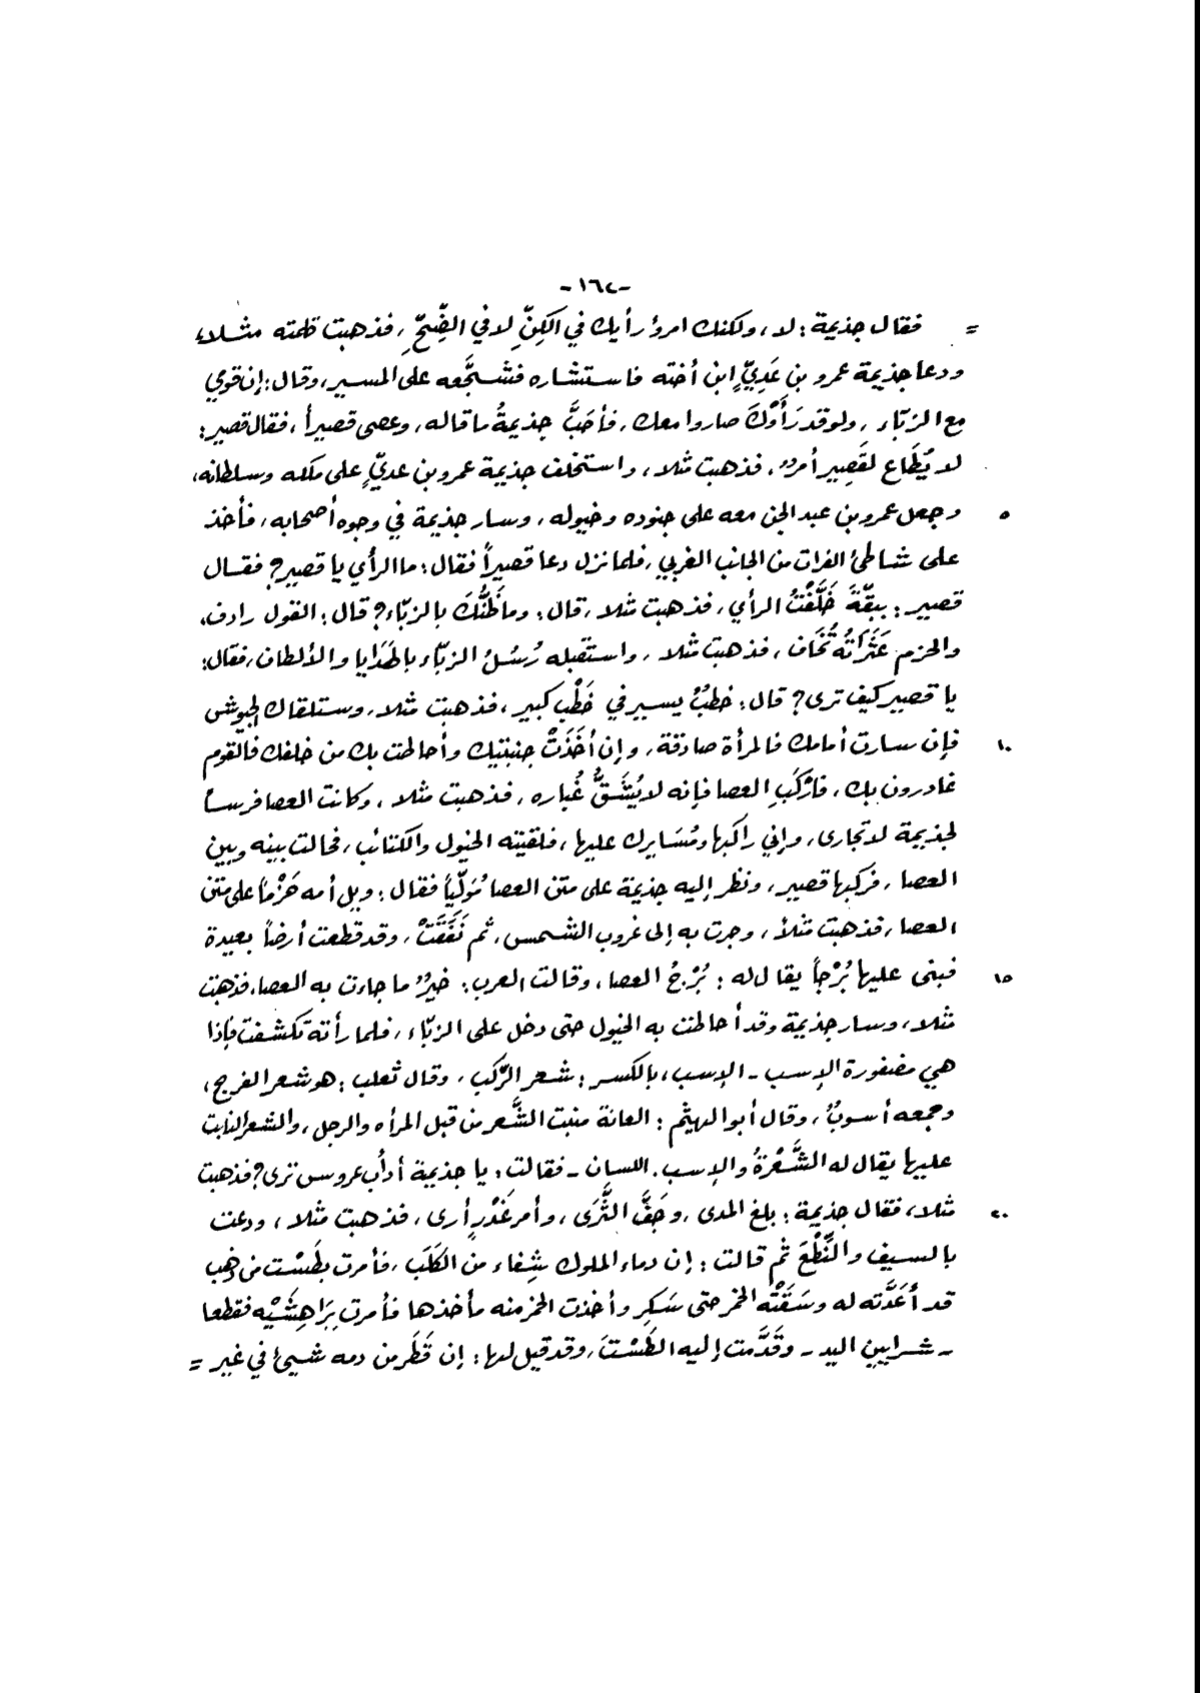 -١٦٢-
= فقال جذيمة: لا، ولكنك امرؤ رأيك في الكِنِّ لا في الضِّحِّ، فذهبت كلمته مثلاً،
ودعا جذيمة عمرو بن عَدِيٍّ ابن أخته فاستشاره فشجَّعه على المسير، وقال: إن قومي
مع الزبّاء، ولو قد رَأَوْكَ صاروا معك، فأحَبَّ جذيمةُ ما قاله، وعصى قصيراً، فقال قصير:
لا يُطَاع لقَصِير أمرٌ، فذهبت مثلا، واستخلف جذيمة عمرو بن عديٍّ على ملكه وسلطانه،
٥ وجعل عمرو بن عبد الجن معه على جنوده وخيوله، وسار جذيمة في وجوه أصحابه، فأخذ
على شاطئ الفرات من الجانب الغربي، فلما نزل دعا قصيراً فقال: ما الرأي يا قصير؟ فقال
قصير: ببقَّةَ خَلَّفْتُ الرأي، فذهبت مثلا، قال: وما ظَنُّكَ بالزبّاء؟ قال: القول رادف،
والحزم عَثَرَاتُهُ تُخَاف، فذهبت مثلا، واستقبله رُسُلُ الزبّاء بالهَدَايا والألطاف، فقال:
يا قصير كيف ترى؟ قال: خطبٌ يسير في خَطْب كبير، فذهبت مثلا، وستلقاك الجيوش
١٠ فإن سارت أمامك فالمرأة صادقة، وإن أَخَذَتْ جنبتيك وأحاطت بك من خلفك فالقوم
غادرون بك، فارْكَبِ العصا فإنه لا يُشَقُّ غُباره، فذهبت مثلا، وكانت العصا فرساً
لجذيمة لا تجارى، وإني راكبها ومُسَايرك عليها، فلقيته الخيول والكتائب، فحالت بينه وبين
العصا، فركبها قصير، ونظر إليه جذيمة على متن العصا مُوَلّياً فقال: ويل أمه حَزْماً على متن
العصا، فذهبت مثلاً، وجرت به إلى غروب الشمس، ثم نَفَقَتْ، وقد قطعت أرضاً بعيدة
١٥ فبنى عليها بُرْجاً يقال له: بُرْجُ العصا، وقالت العرب: خيرٌ ما جاءت به العصا، فذهبت
مثلا، وسار جذيمة وقد أحاطت به الخيول حتى دخل على الزبّاء، فلما رأته تكشفت فإذا
هي مضفورة الإسب - الإسب، بالكسر: شعر الرَّكَب، وقال ثعلب: هو شعر الفرج،
وجمعه أسوبٌ، وقال أبو الهيثم: العانة منبت الشَّعر من قبل المرأه والرجل، والشعر النابت
عليها يقال له الشَّعْرَةُ والإسب. اللسان - فقالت: يا جذيمة أدأب عروس ترى؟ فذهبت
٢٠ مثلا، فقال جذيمة: بلغ المدى، وجَفَّ الثَّرَى، وأمر غَدْرٍ أرى، فذهبت مثلا، ودعت
بالسيف والنِّطْعَ ثم قالت: إن دماء الملوك شِفاء من الكَلَب، فأمرت بطَسْت من ذهب
قد أعَدَّته له وسَقَتْه الخمر حتى سَكِر وأخذت الخمر منه مأخذها فأمرت بِرَاهِشَيْه فقطعا
- شرايين اليد - وقَدَّمت إليه الطَسْتَ، وقد قيل لها: إن قَطَر من دمه شيئ في غير =